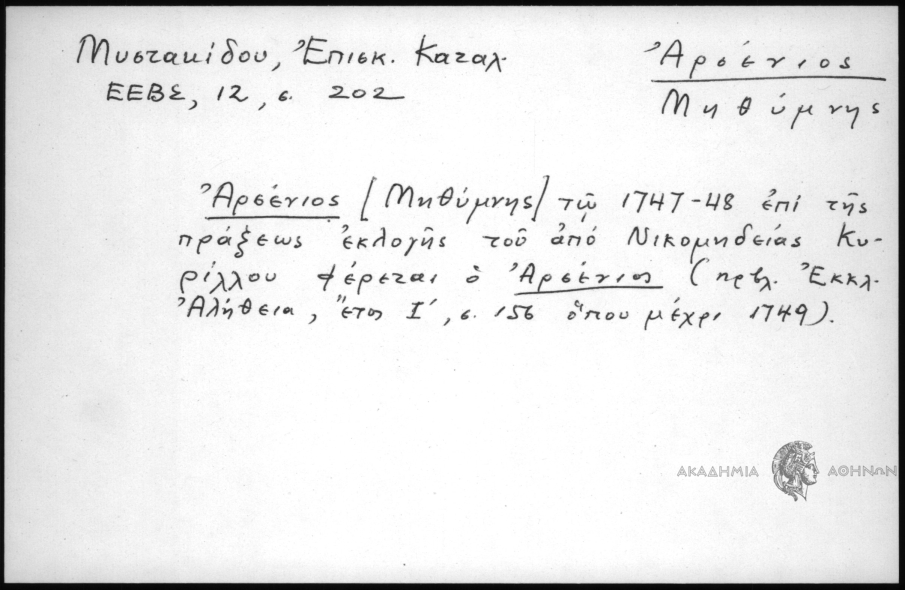 Μυστακίδου, Ἐπισκ. Καταλ.
ΕΕΒΣ, 12, σ. 202
Ἀρσένιος
Μηθύμνης
Ἀρσένιος [Μηθύμνης] τῷ 1747-48 ἐπί τῆς
πράξεως ἐκλογῆς τοῦ ἀπό Νικομηδείας Κυ-
ρίλλου φέρεται ὁ Ἀρσένιος (πρβλ. Ἐκκλ.
Ἀλήθεια, ἔτος Ι΄, σ. 156 ὅπου μέχρι 1749).
ΑΚΑΔΗΜΙΑ ΑΘΗΝΩΝ